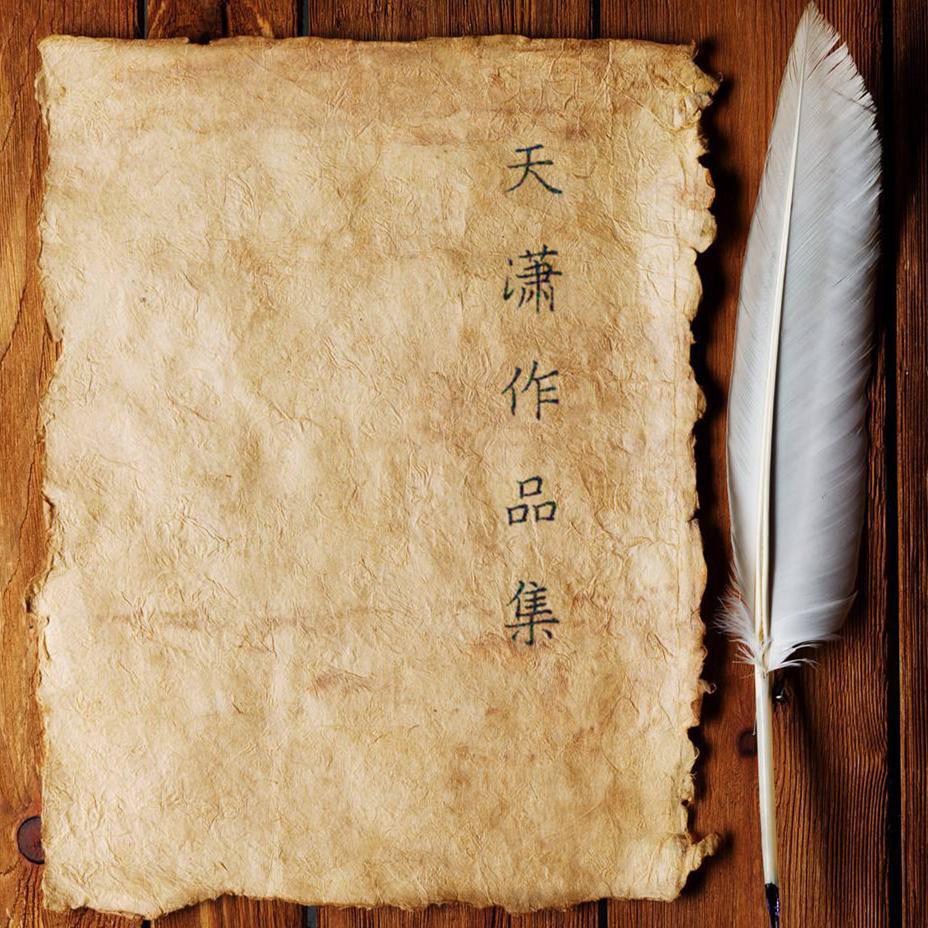 天潇作品集